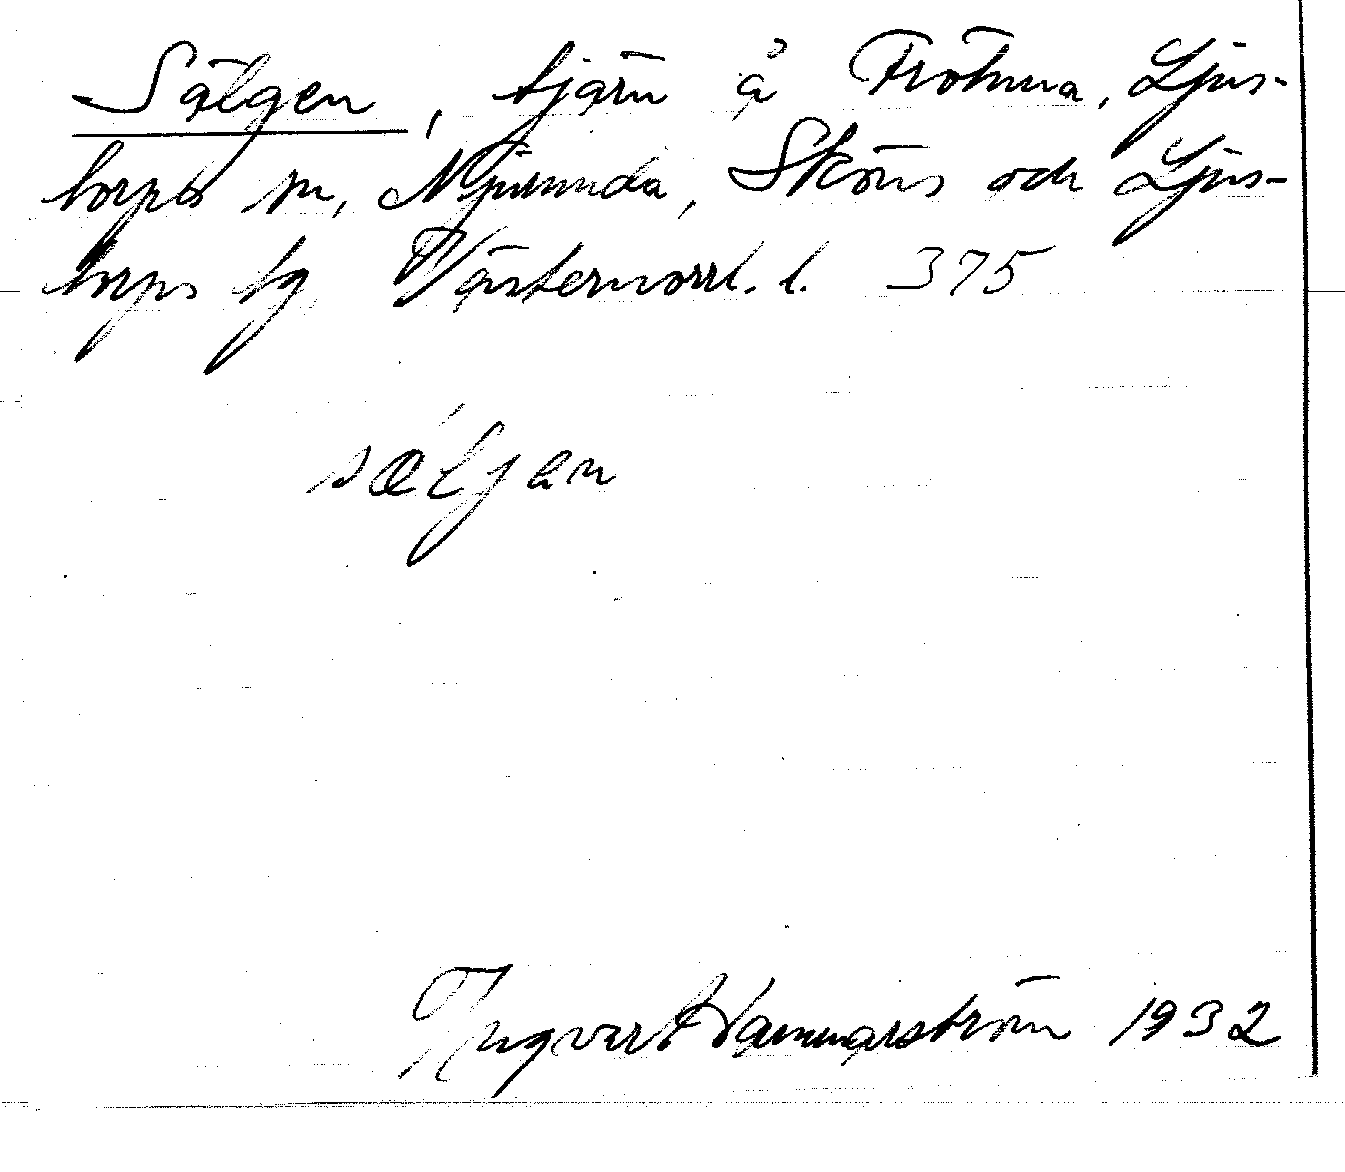 Sälgen, tjärn å Frötuna, Ljus-
torps sn, Njurunda, Sköns och Ljus-
torps tg Västernorrl. l. 375
sæljen
Ingvar Hammarström 1932